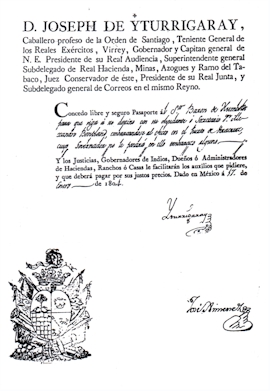 D. JOSEPH DE YTURRIGARAY,
Caballero profeso de la Orden de Santiago, Teniente General de
los Reales Exércitos, Virrey, Gobernador y Capitan general de
N. E. Presidente de su Real Audiencia, Superintendente general
Subdelegado de Real Hacienda, Minas, Azogues y Ramo del Ta-
baco, Juez Conservador de éste, Presidente de su Real Junta, y
Subdelegado general de Correos en el mismo Reyno.
Concedo libre y seguro Pasaporte al Sor. Baron de
para que siga á su destino con su
embarcandose en el Puerto de
cuya no le pondrá embarazo alguno.
Y los Justicias, Gobernadores de Indios, Dueños ó Administradores
de Haciendas, Ranchos ó Casas le facilitarán los auxilios que pidiere,
y que deberá pagar por sus justos precios. Dado en México á 17. de
Enero de 1804.
Yturrigaray
José Ximenez